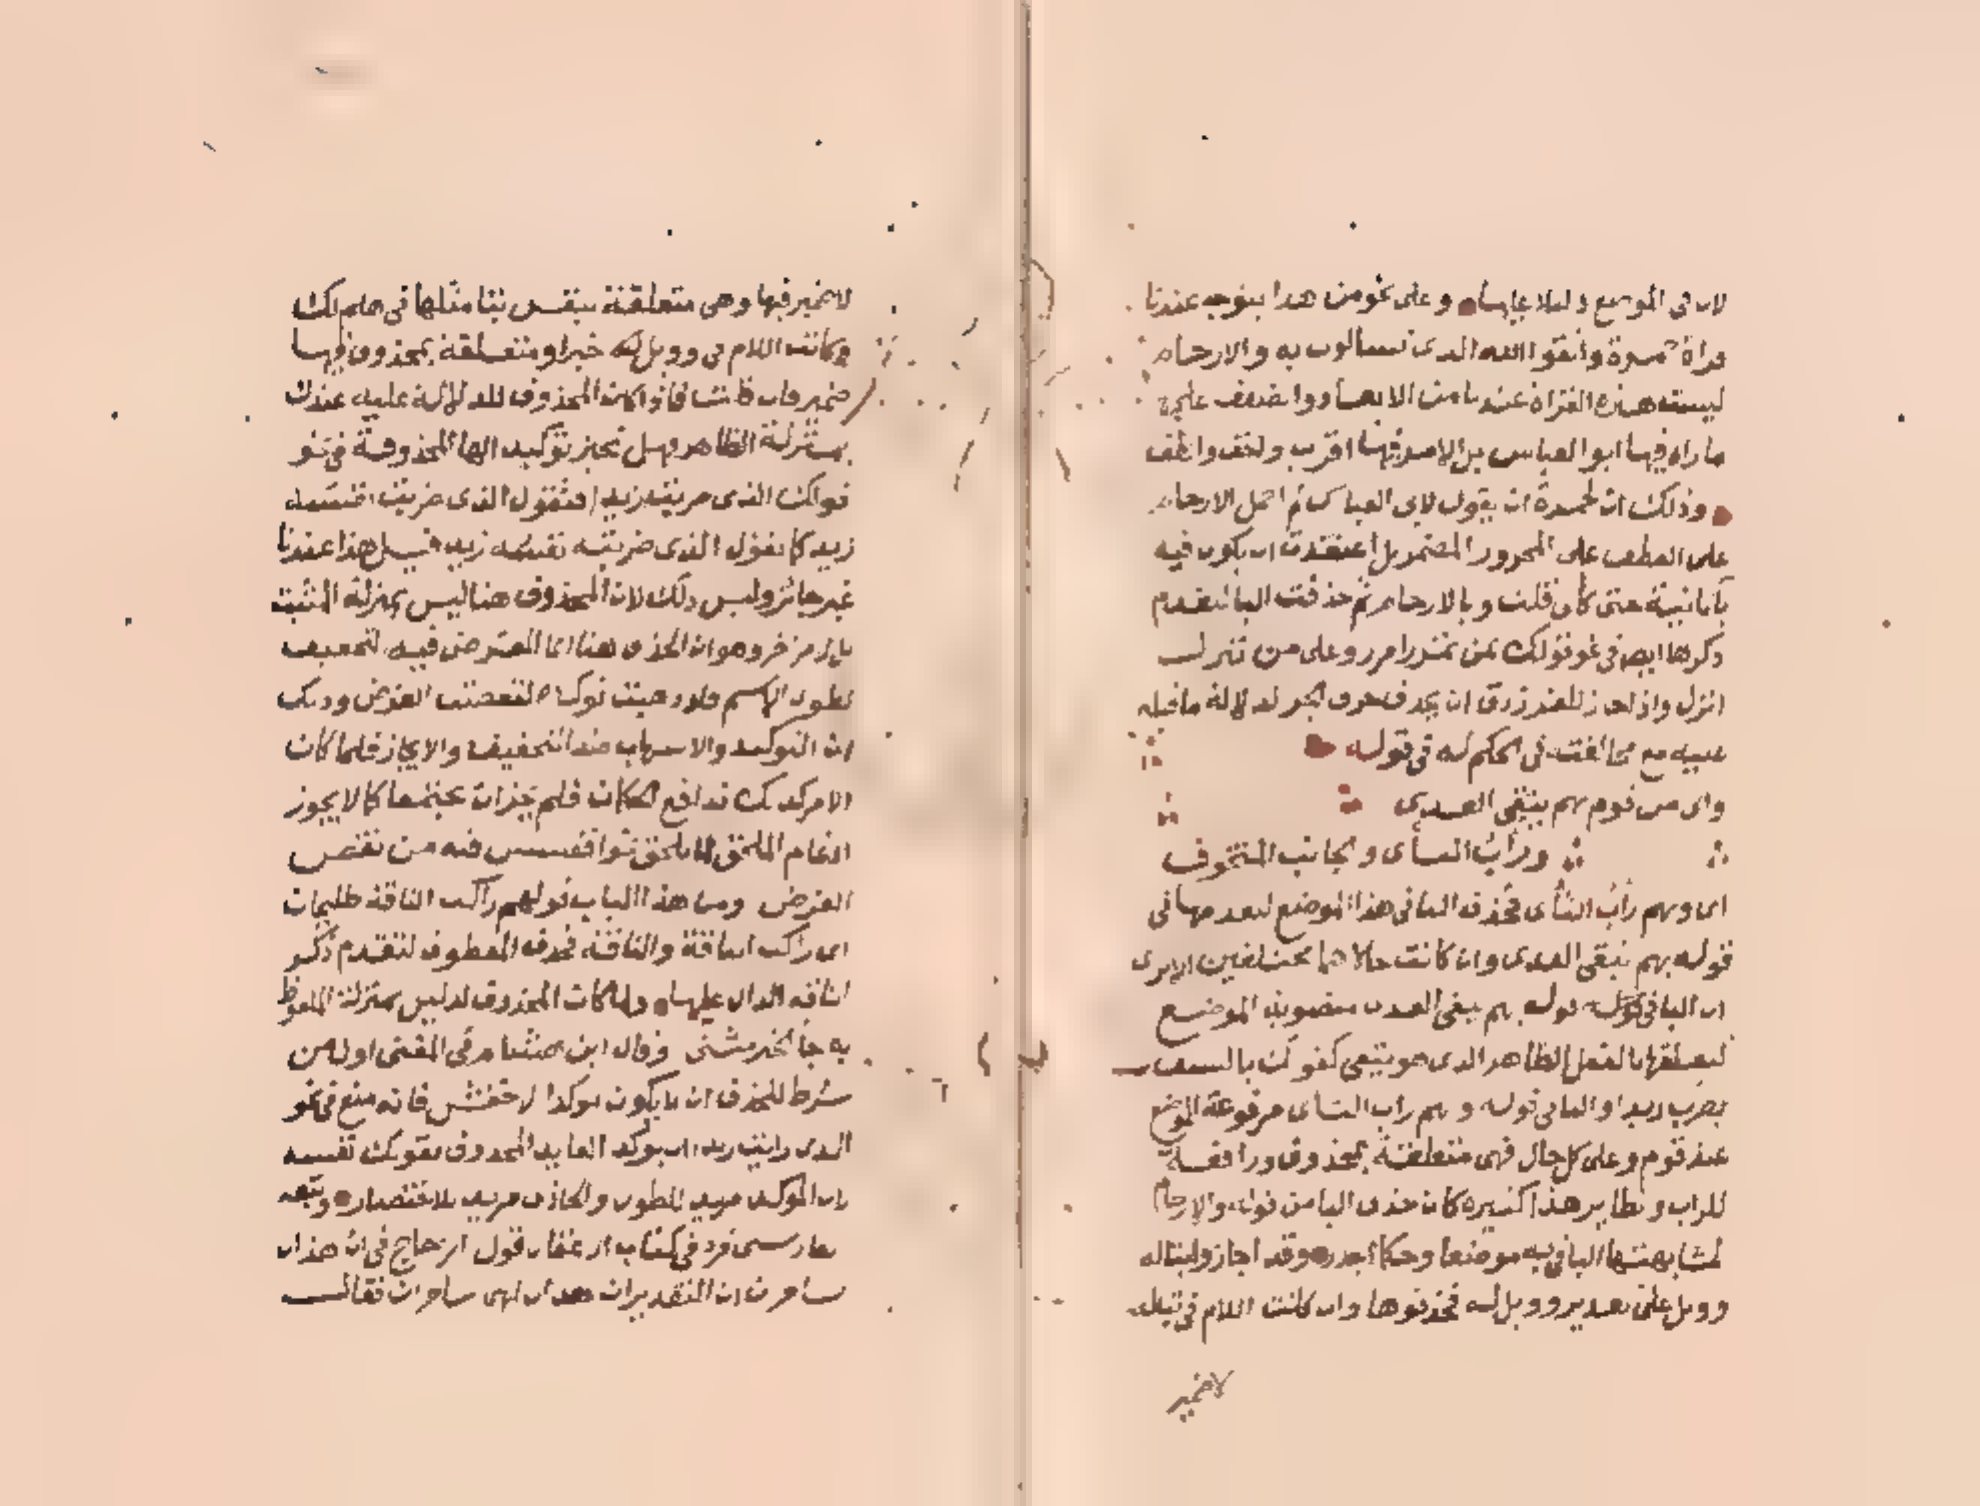 لان في الموضع دليلا عليها وعلى نحو من هذا يتوجه عندنا
قراة حمزة واتقوا الله الذي تسالون به والارحام
ليست هذه القراة عندنا من الابعاد والضعف على
ما راه فيها ابو العباس بل الامر فيها اقرب واخف والطف
وذلك ان لحمزة ان يقول لابي العباس لم احمل الارحام
على العطف على المجرور المضمر بل اعتقدت ان يكون فيه
با ثانية حتى كاني قلت وبالارحام ثم حذفت البا لتقدم
ذكرها ايض في نحو قولك بمن تمرر امرر وعلى من تنزل
انزل واذا جاز للفرزدق ان يحذف حرف الجر لدلالة ما قبله
عليه مع مخالفته في الحكم له في قوله
واي من قوم بهم يتقى العدى
وراب الثأى والجانب المتخوف
اي وبهم راب الثأى فحذف البا في هذا الموضع لتقدمها في
قوله بهم يتقى العدى وان كانت حالاهما مختلفين الا ترى
ان البا في قوله بهم يتقى العدى منصوبة الموضع
لتعلقها بالفعل الظاهر الذي هو يتقى كقولك بالسيف
يضرب زيد والبا في قوله وبهم راب الثأى مرفوعة الموضع
عند قوم وعلى كل حال فهي متعلقة بمحذوف ورافعة
للراب ونظاير هذا كثيرة كان حذف البا من قوله والارحام
لمشابهتها البا في به موضعا وحكما اجدر وقد اجازوا تبا له
وويل على تقدير وويل له فحذفوها وان كانت اللام في تبا له
لا ضمير
لا ضمير فيها وهي متعلقة بنفس تبا مثلها في هلم لك
وكانت اللام في وويل له خبرا ومتعلقة بمحذوف فيها
ضمير فان قلت فاذا كان المحذوف للدلالة عليه عندك
بمنزلة الظاهر فهل تجيز توكيد الها المحذوفة في نحو
قولك الذي ضربته زيد افتقول الذي ضربت نفسه
زيد كما تقول الذي ضربته نفسه زيد قيل هذا عندنا
غير جائز وليس ذلك لان المحذوف هنا ليس بمنزلة المثبت
بل لامر اخر وهو ان الحذف هنا انما الغرض فيه التخفيف
لطول الاسم فلو ذهبت توكده لنقضت الغرض وذلك
ان التوكيد والاسهاب ضد التخفيف والايجاز فلما كان
الامر كذلك تدافع الحكمان فلم يجز ان يجتمعا كما لا يجوز
ادغام الملحق لما فيه من نقض
الغرض ومن هذا الباب قولهم راكب الناقة طليحان
اي راكب الناقة والناقة فحذف المعطوف لتقدم ذكر
الناقه الدال عليها ولما كان المحذوف لدليل بمنزلة الملفوظ
به جا الخبر مثنى وقال ابن هشام في المغني اول من
شرط للحذف ان لا يكون موكدا الاخفش فانه منع في نحو
الذي رايت زيد ان يوكد العايد المحذوف بقولك نفسه
لان الموكد مريد للطول والحاذف مريد للاختصار وتبعه
الفارسي فرد في كتاب الاغفال قول الزجاج في ان هذان
ساحران ان التقدير ان هذان لهما ساحران فقال